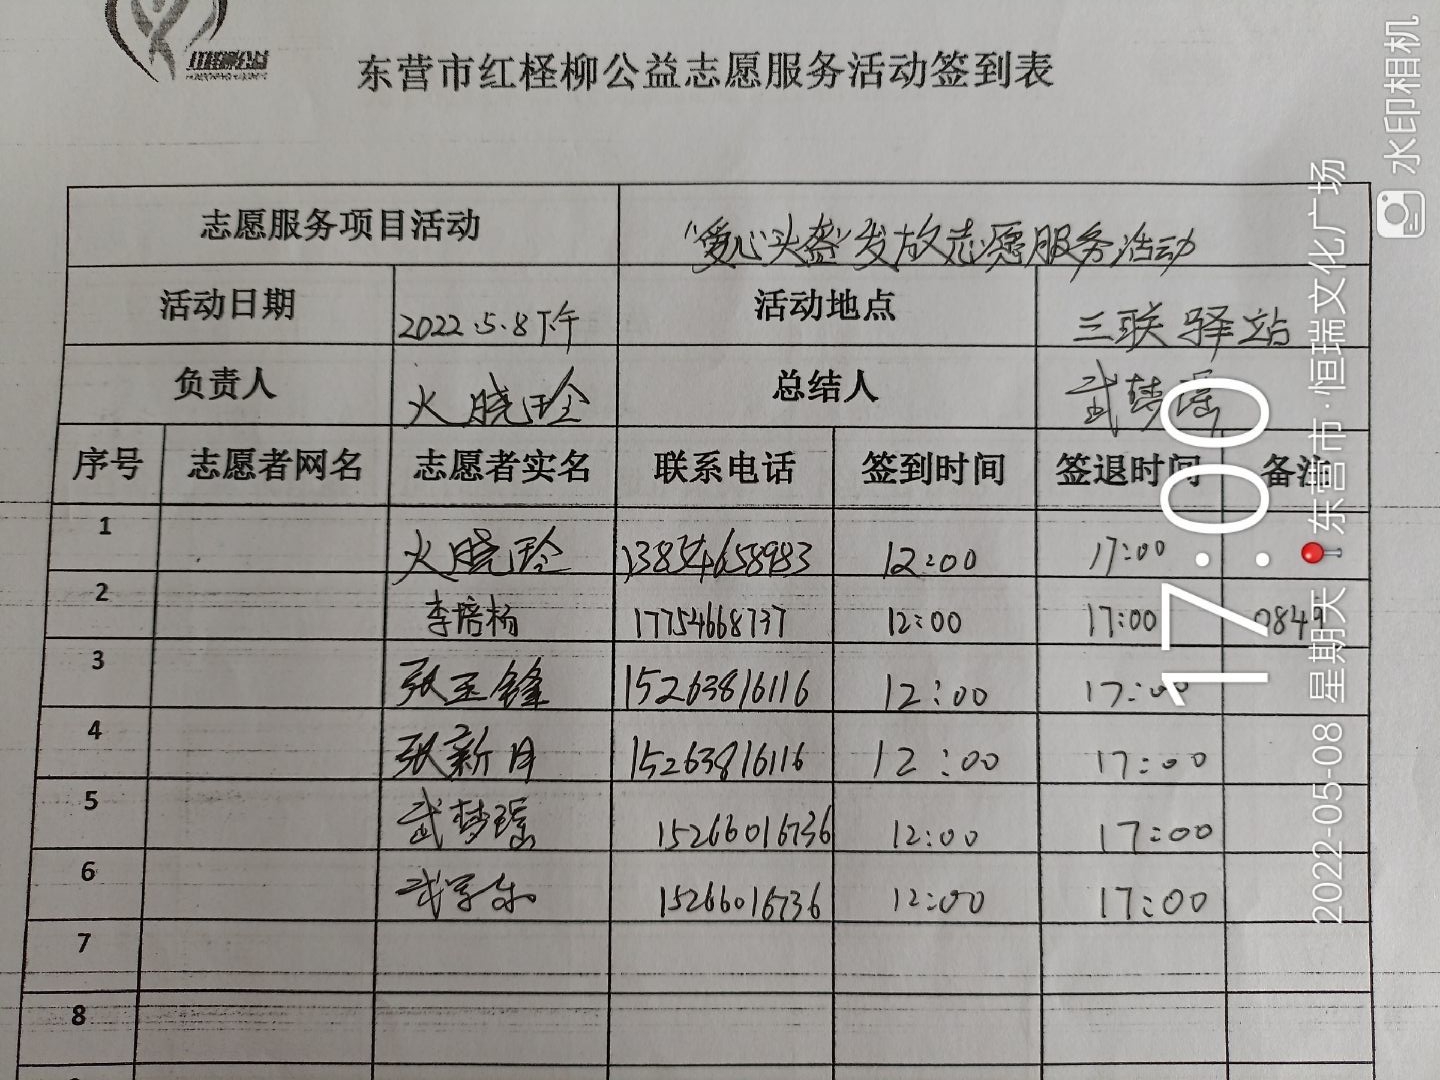 红柽柳公益
东营市红柽柳公益志愿服务活动签到表
志愿服务项目活动 “爱心头盔”发放志愿服务活动
活动日期 2022.5.8下午 活动地点 三联驿站
负责人 火晓玲 总结人 武梦瑶
序号 志愿者网名 志愿者实名 联系电话 签到时间 签退时间 备注
1 火晓玲 13854658983 12:00 17:00
2 李培杨 17754668737 12:00 17:00 0849
3 张玉锋 15263816116 12:00 17:00
4 张新月 15263816116 12:00 17:00
5 武梦瑶 15266016736 12:00 17:00
6 武 15266016736 12:00 17:00
7
8
水印相机
17:00
2022-05-08 星期天 东营市·恒瑞文化广场